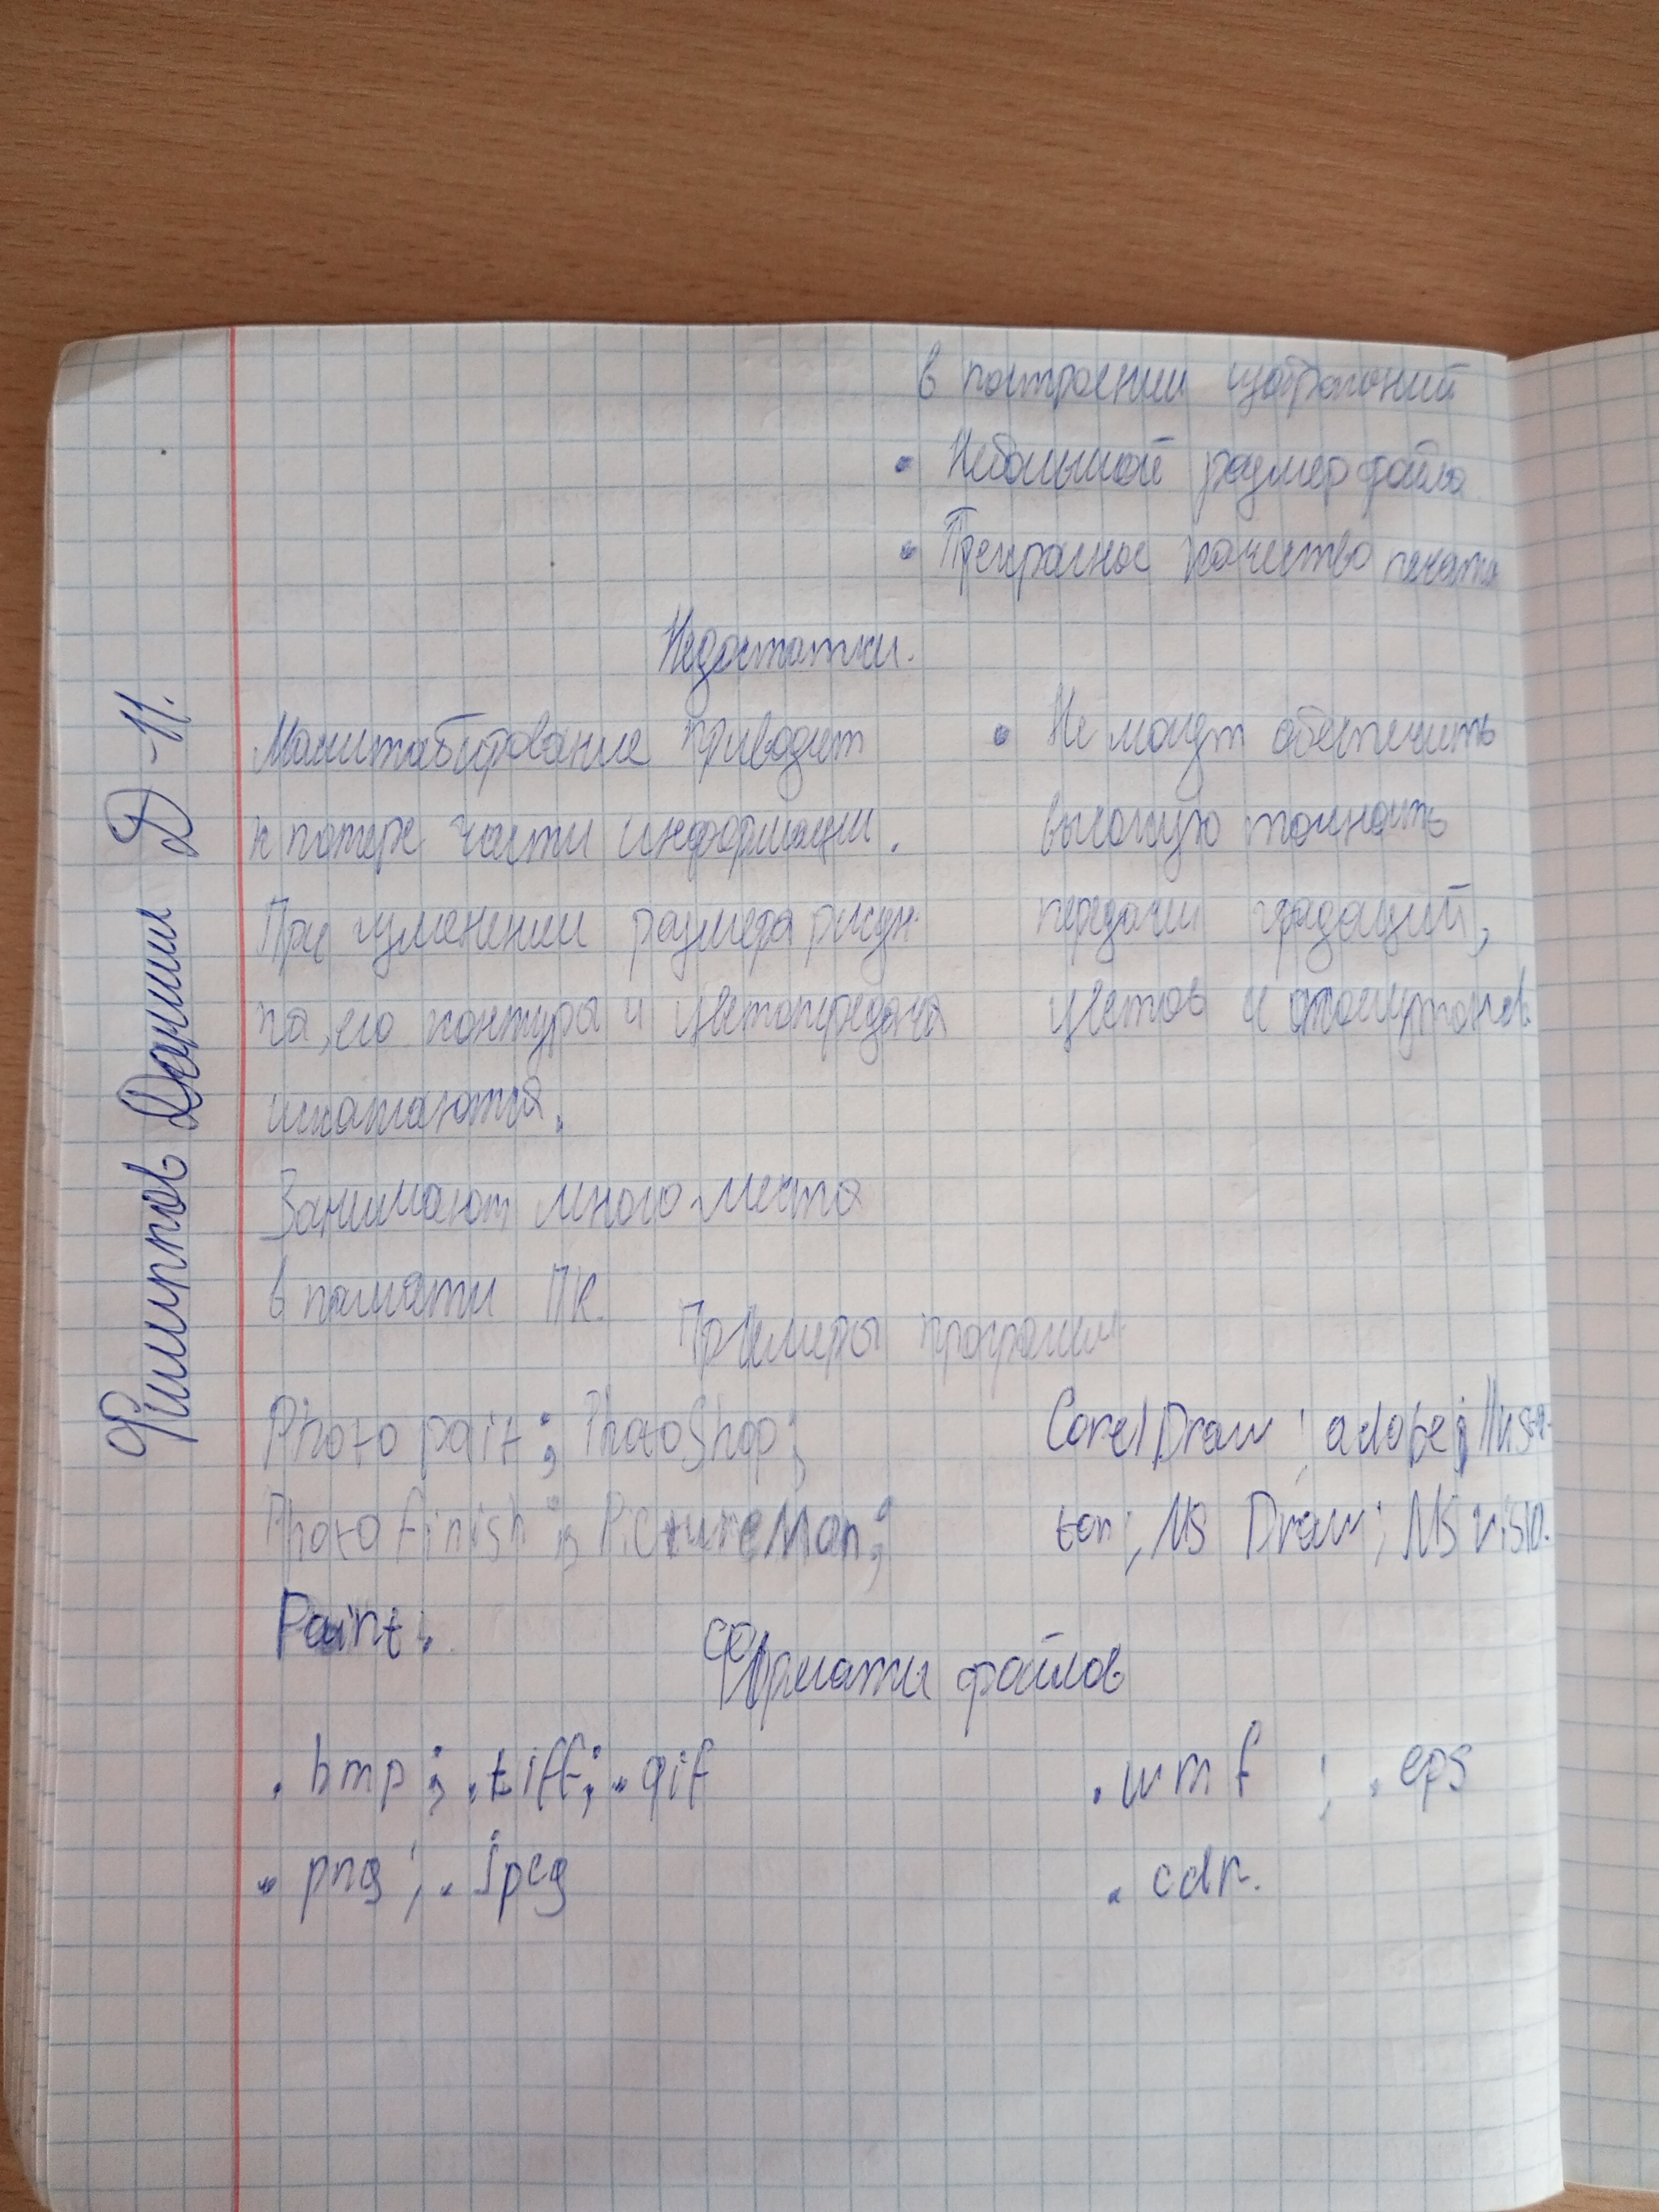 в построении изображений
• Небольшой размер файла
• Прекрасное качество печати
Недостатки.
Масштабирование приводит
к потере части информации.
При изменении размера рисун-
ка, его контуры и цветопередача
искажаются.
Занимают много места
в памяти ПК.
• Не могут обеспечить
высокую точность
передачи градаций,
цветов и
Примеры программ
Photo pait; PhotoShop;
Photo finish; PictureMan;
Paint.
CorelDraw; adobe illustra-
tor; MS Draw; MS visio.
Форматы файлов
.bmp; .tiff; .gif
.png; .jpeg
.wmf; .eps
.cdr.
Филиппов Даниил Д-11.